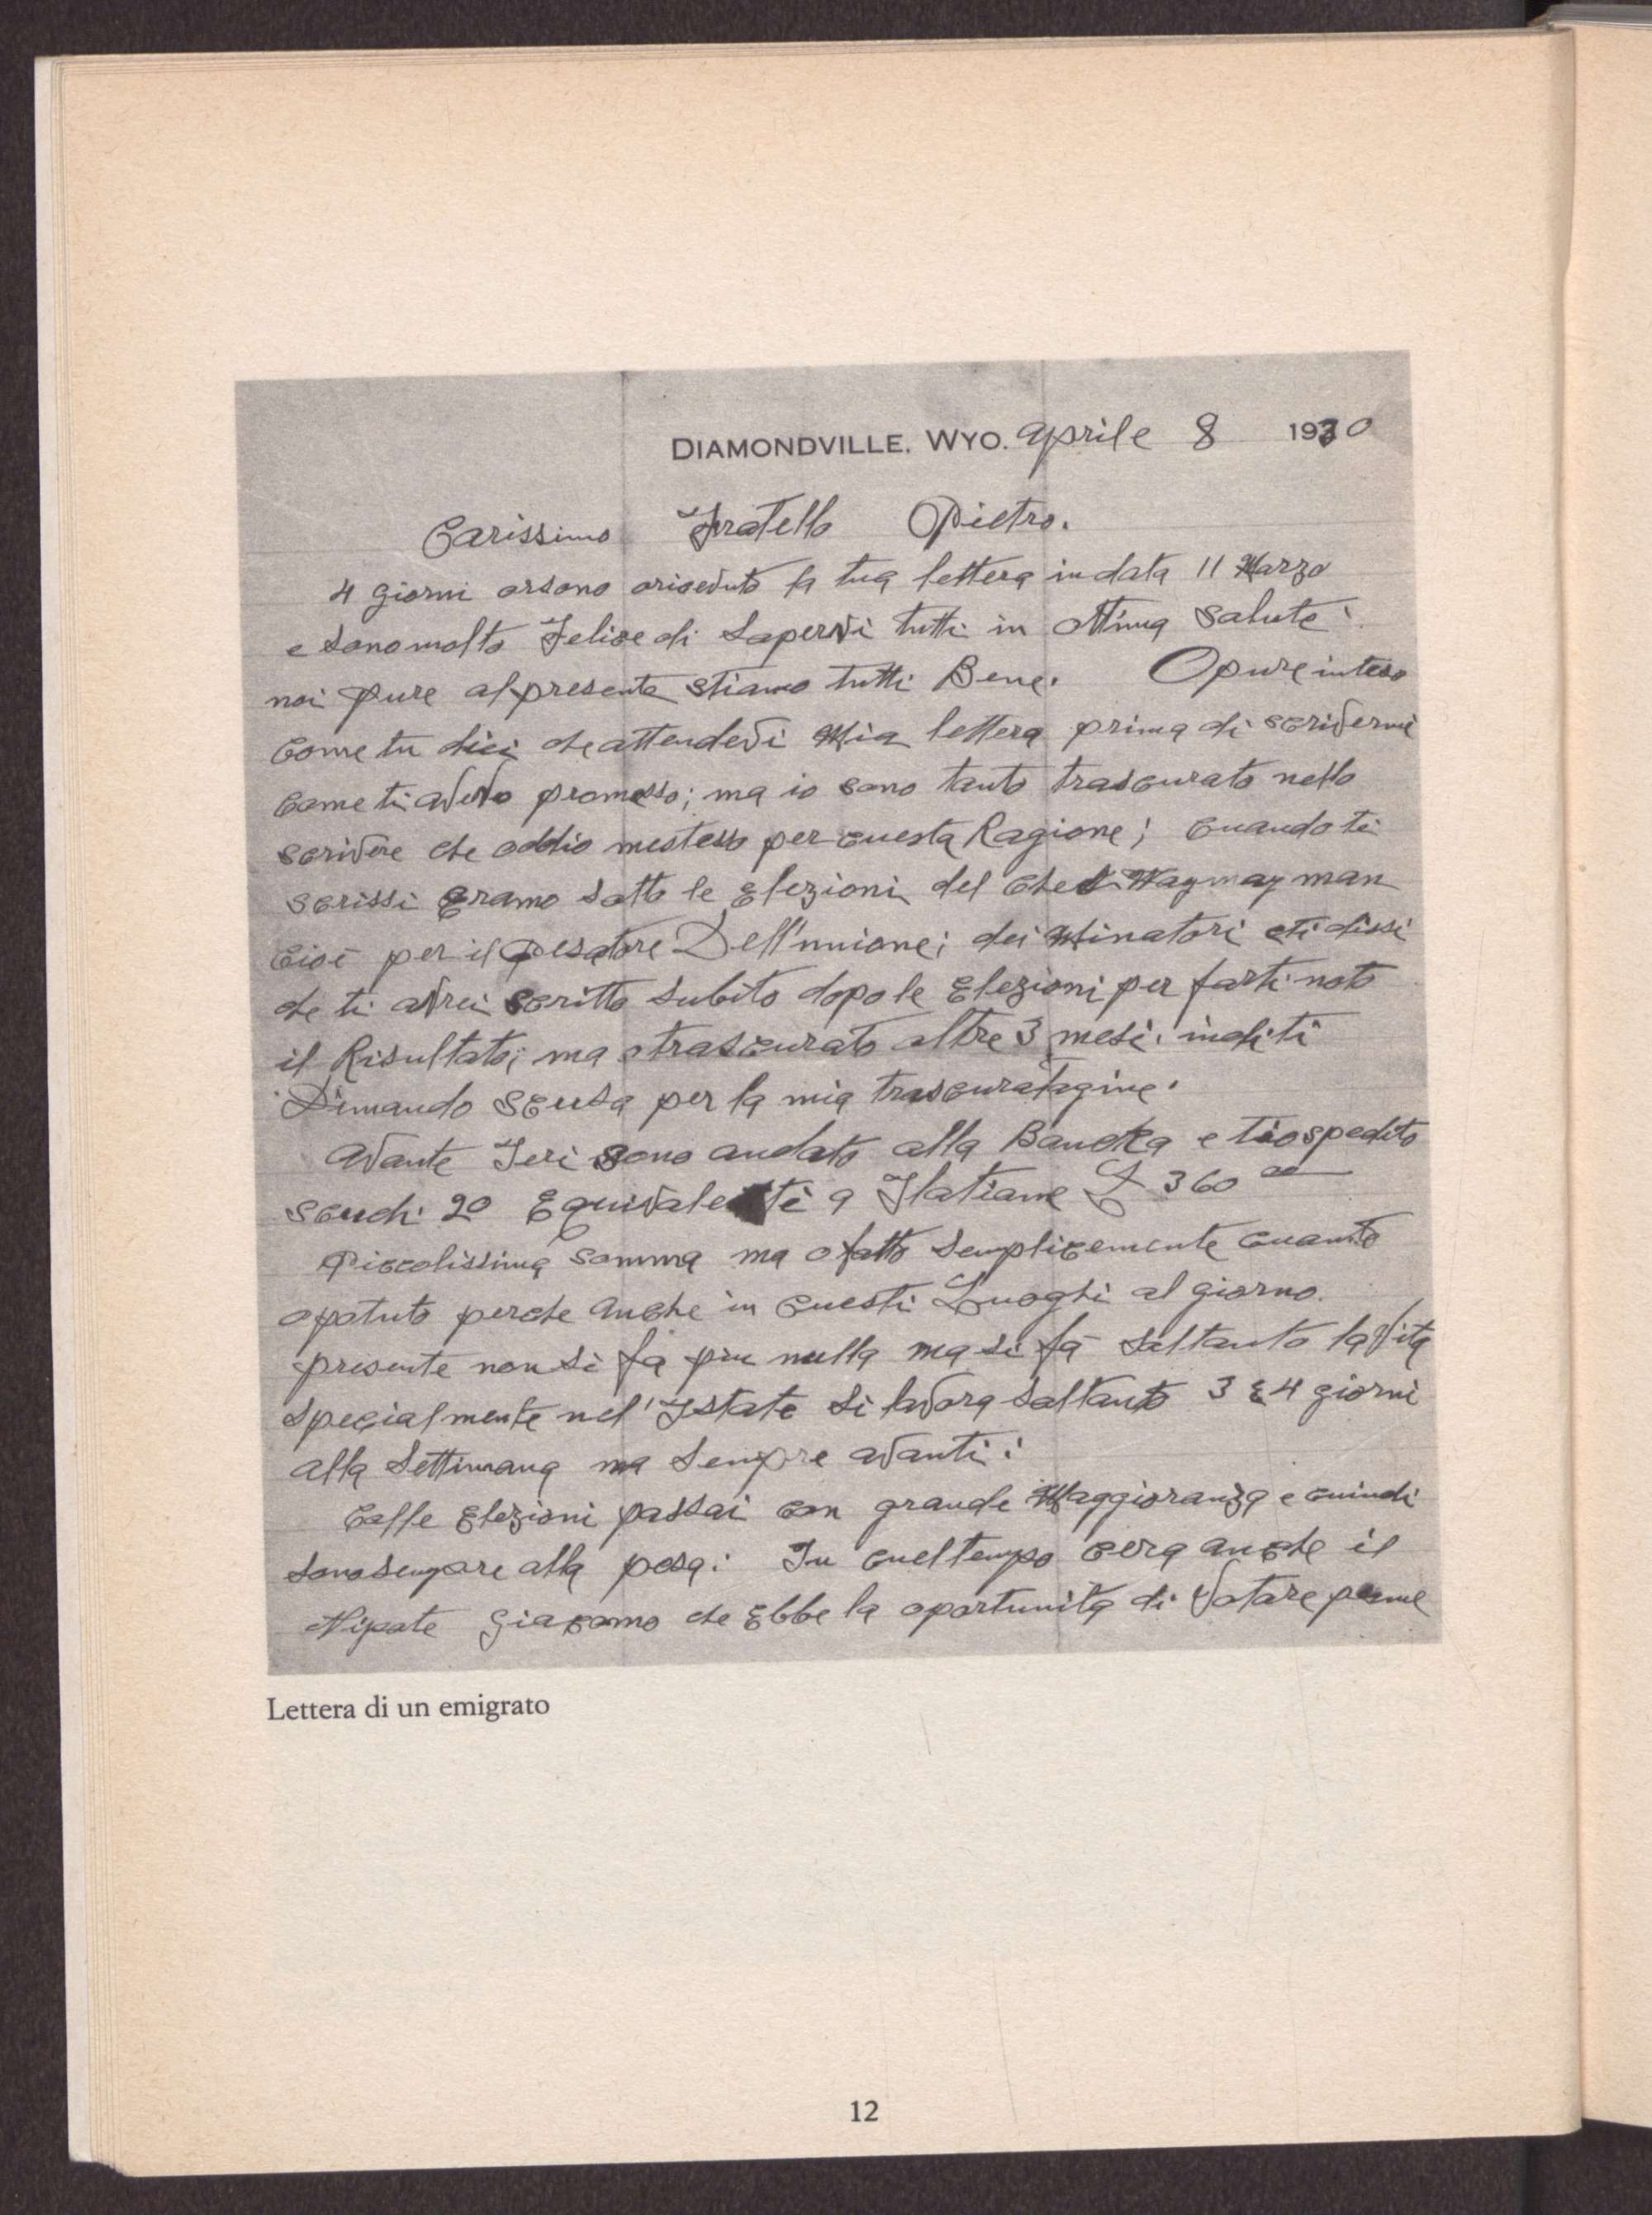 DIAMONDVILLE, WYO. aprile 8 1930
Carissimo Fratello Pietro.
4 giorni orsono oriceduto la tua lettera in data 11 Marzo
e sono molto Felice di Sapervi tutti in Ottima Salute:
noi pure al presente stiamo tutti Bene. O pure inteso
Come tu dici che attendevi Mia lettera prima di scrivermi
Come ti avevo promesso; ma io sono tanto trascurato nello
scrivere che oddio mestesso per cuesta Ragione; Cuando ti
scrissi Eramo Sotto le Elezioni del man
Cioè per il Pesatore Dell'unione; dei Minatori eti dissi
che ti avrei scritto Subito dopo le Elezioni per farti noto
il Risultato; ma o trascurato altre 3 mesi. indi ti
Dimando Scusa per la mia trascuratagine.
Avante Ieri sono andato alla Bancka e tiospedito
scudi 20 Equivalenti a Itatiane £ 360 00
Piccolissima Somma ma o fatto Semplicemente cuanto
opotuto perche anche in cuesti Luoghi al giorno.
presente non si fa piu nulla ma si fa Soltanto la Vita
Specialmente nel' Istate Si lavora Soltanto 3 E 4 giorni
alla Settimana ma Sempre avanti:
Colle Elezioni passai con grande Maggioranza e cuindi
Sono Sempre alla pesa: In cuel tempo cera anche il
Nipote Giacomo che Ebbe la oportunita di Votare perme
Lettera di un emigrato
12